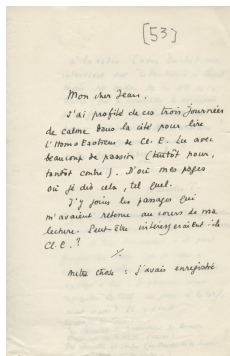 [53]
Mon cher Jean,
J'ai profité de ces trois journées
de calme dans la cité pour lire
l'Homo Esotericus de Cl. E. Lu avec
beaucoup de passion (tantôt pour,
tantôt contre). D'où mes pages
où je dis cela, tel quel.
J'y joins les passages qui
m'avaient retenu au cours de ma
lecture. Peut-être intéresseraient-ils
Cl. E. ?
Autre chose : j'avais enregistré